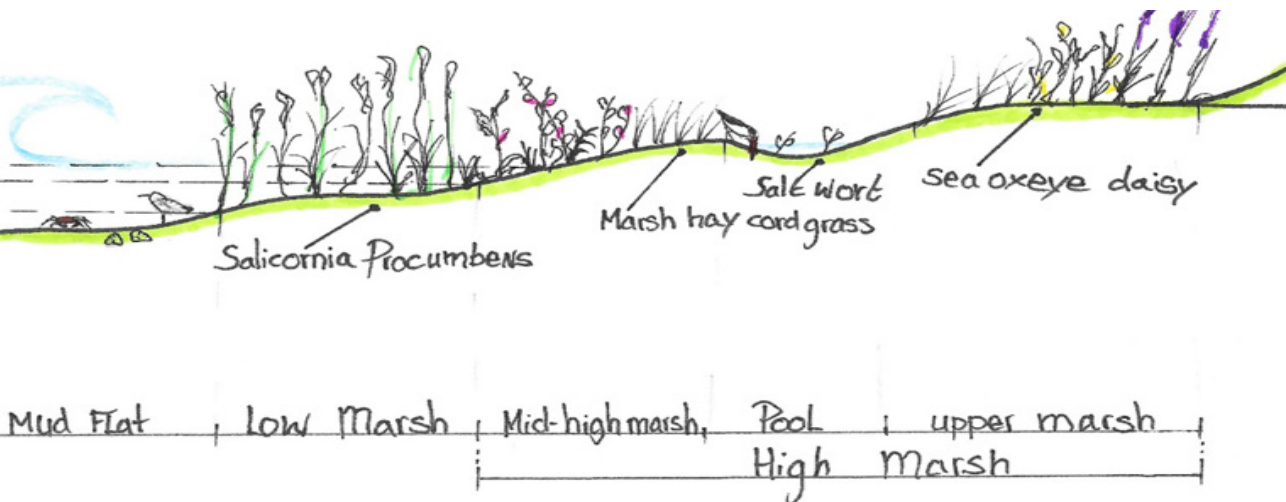 Salicornia Procumbens
Marsh hay cord grass
Salt wort
sea oxeye daisy
Mud Flat
Low Marsh
Mid-high marsh
Pool
upper marsh
High Marsh